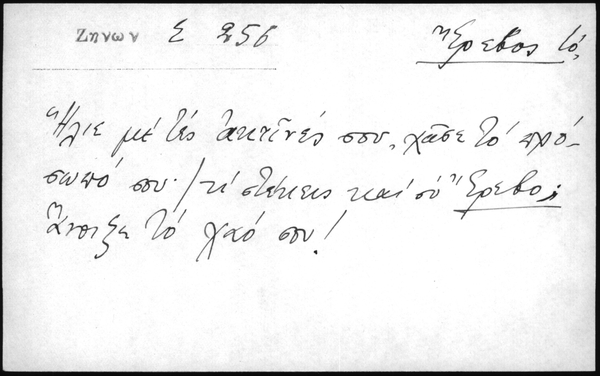 Ζηνων Σ 256
Ἔρεβος τό,
Ἥλιε μὲ τὲς ἀκτῖνές σου, χᾶσε τὸ πρό-
σωπό σου· / τί στέκεις καὶ σὺ Ἔρεβο;
ἄνοιξε τὸ χαό σου!